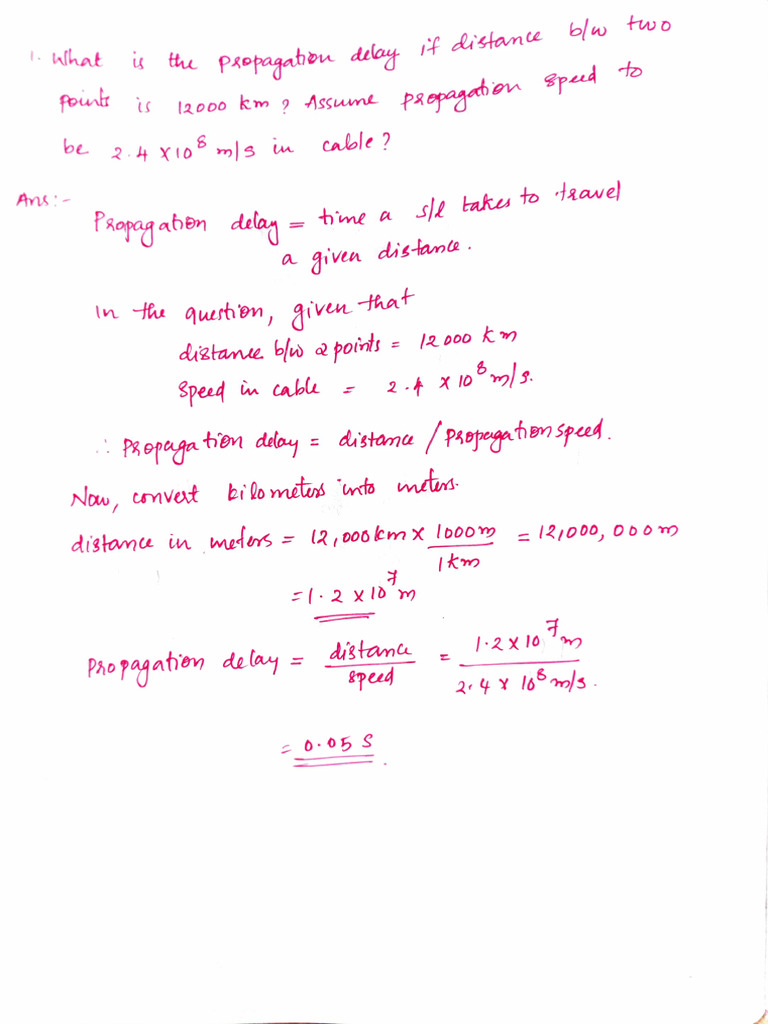 1. What is the propagation delay if distance b/w two
points is 12000 km? Assume propagation speed to
be 2.4 × 10⁸ m/s in cable?
Ans:-
Propagation delay = time a s/l takes to travel
a given distance.
In the question, given that
distance b/w 2 points = 12000 km
Speed in cable = 2.4 × 10⁸ m/s.
∴ Propagation delay = distance / Propagation speed.
Now, convert kilometers into meters.
distance in meters = 12,000 km × 1000 m / 1 km = 12,000,000 m
= 1.2 × 10⁷ m
Propagation delay = distance / speed = 1.2 × 10⁷ m / 2.4 × 10⁸ m/s.
= 0.05 S.